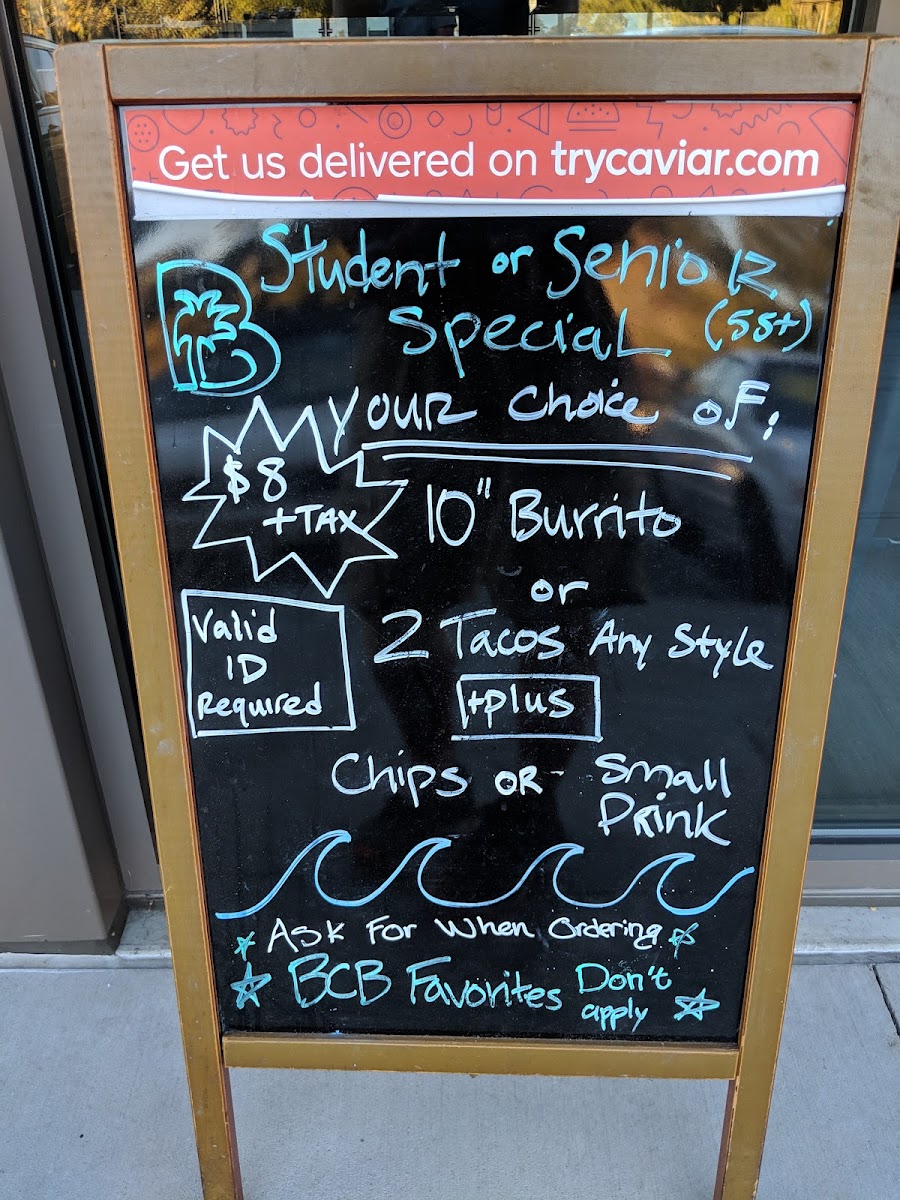 Get us delivered on trycaviar.com
Student or Senior
Special (55+)
B
Your Choice of:
$8
+TAX
10" Burrito
or
Valid
ID
Required
2 Tacos Any Style
+plus
Chips OR Small
Drink
Ask For When Ordering
BCB Favorites Don't
apply